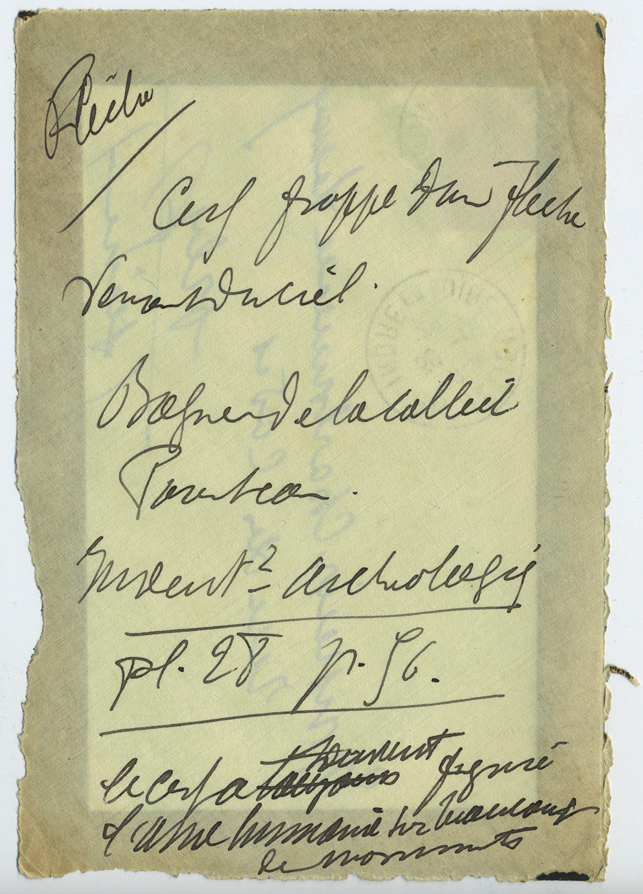 Flèche
Cerf frappé d'une flèche
Venant du ciel.
Bague de la collect
Parenteau.
Invent.re archéologiq
pl. 28 p. 56.
le cerf a souvent figuré
l'ame humaine sur beaucoup
de monuments